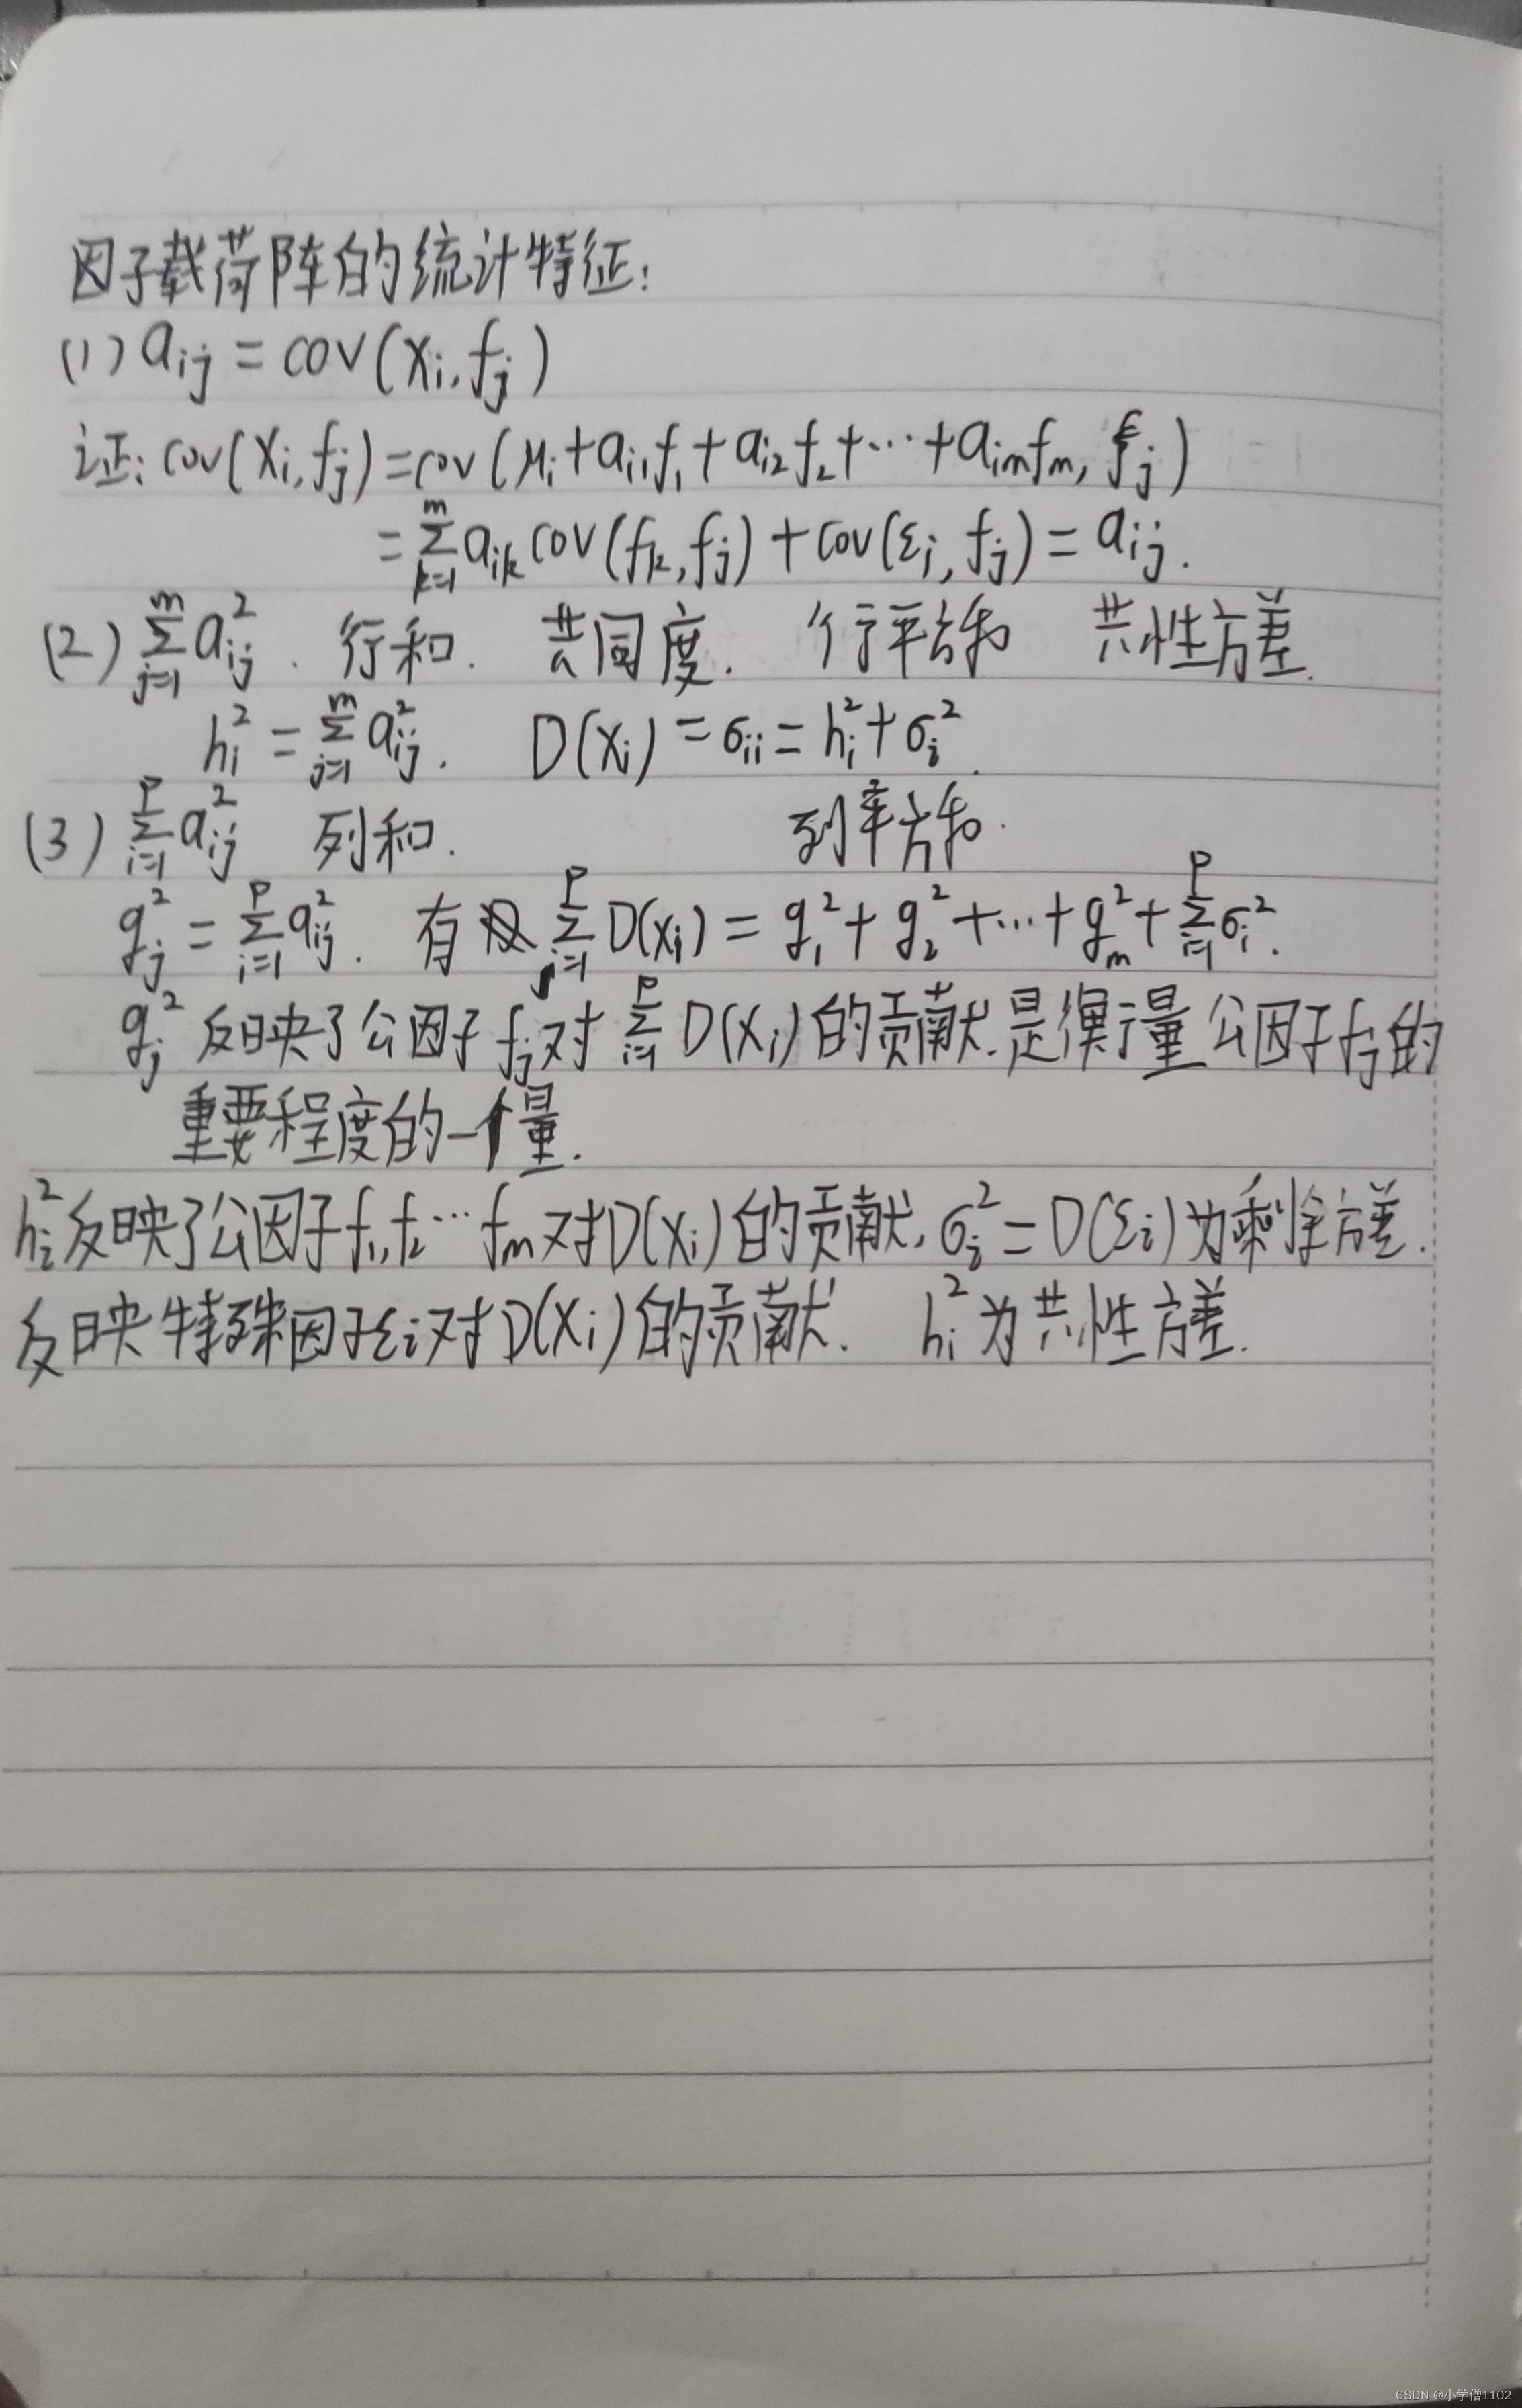 因子载荷阵的统计特征:
(1) aᵢⱼ = cov(xᵢ, fⱼ)
证: cov(xᵢ, fⱼ) = cov(μᵢ + aᵢ₁f₁ + aᵢ₂f₂ + ⋯ + aᵢₘfₘ, fⱼ)
= Σₖ₌₁ᵐ aᵢₖ cov(fₖ, fⱼ) + cov(εᵢ, fⱼ) = aᵢⱼ.
(2) Σⱼ₌₁ᵐ aᵢⱼ². 行和. 共同度. 行平方和 共性方差.
hᵢ² = Σⱼ₌₁ᵐ aᵢⱼ². D(xᵢ) = σᵢᵢ = hᵢ² + σᵢ².
(3) Σᵢ₌₁ᵖ aᵢⱼ² 列和. 列平方和.
gⱼ² = Σᵢ₌₁ᵖ aᵢⱼ². 有 Σᵢ₌₁ᵖ D(xᵢ) = g₁² + g₂² + ⋯ + gₘ² + Σᵢ₌₁ᵖ σᵢ².
gⱼ² 反映了公因子 fⱼ 对 Σᵢ₌₁ᵖ D(xᵢ) 的贡献. 是衡量公因子 fⱼ 的
重要程度的一个量.
hᵢ² 反映了公因子 f₁, f₂ ⋯ fₘ 对 D(xᵢ) 的贡献, σᵢ² = D(εᵢ) 为剩余方差.
反映特殊因子 εᵢ 对 D(xᵢ) 的贡献. hᵢ² 为共性方差.
CSDN @小学僧1102